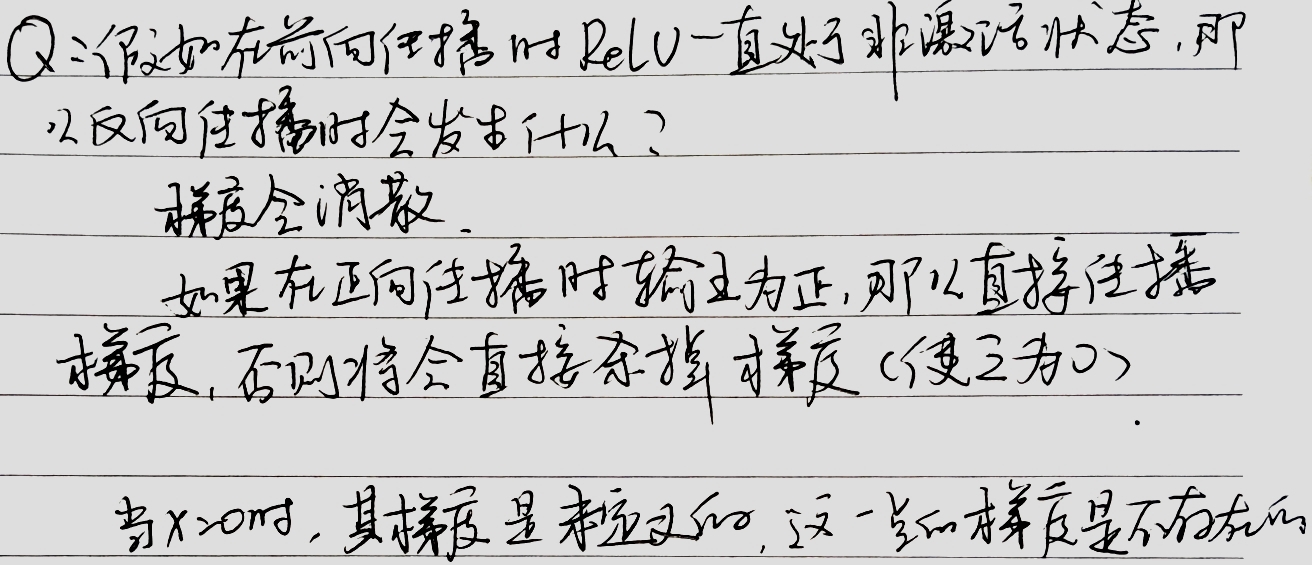 Q:假如在前向传播时ReLU一直处于非激活状态,那
么反向传播时会发生什么?
梯度会消散.
如果在正向传播时输出为正,那么直接传播
梯度,否则将会直接杀掉梯度(使之为0)
当x=0时,其梯度是未定义的,这一点的梯度是不存在的